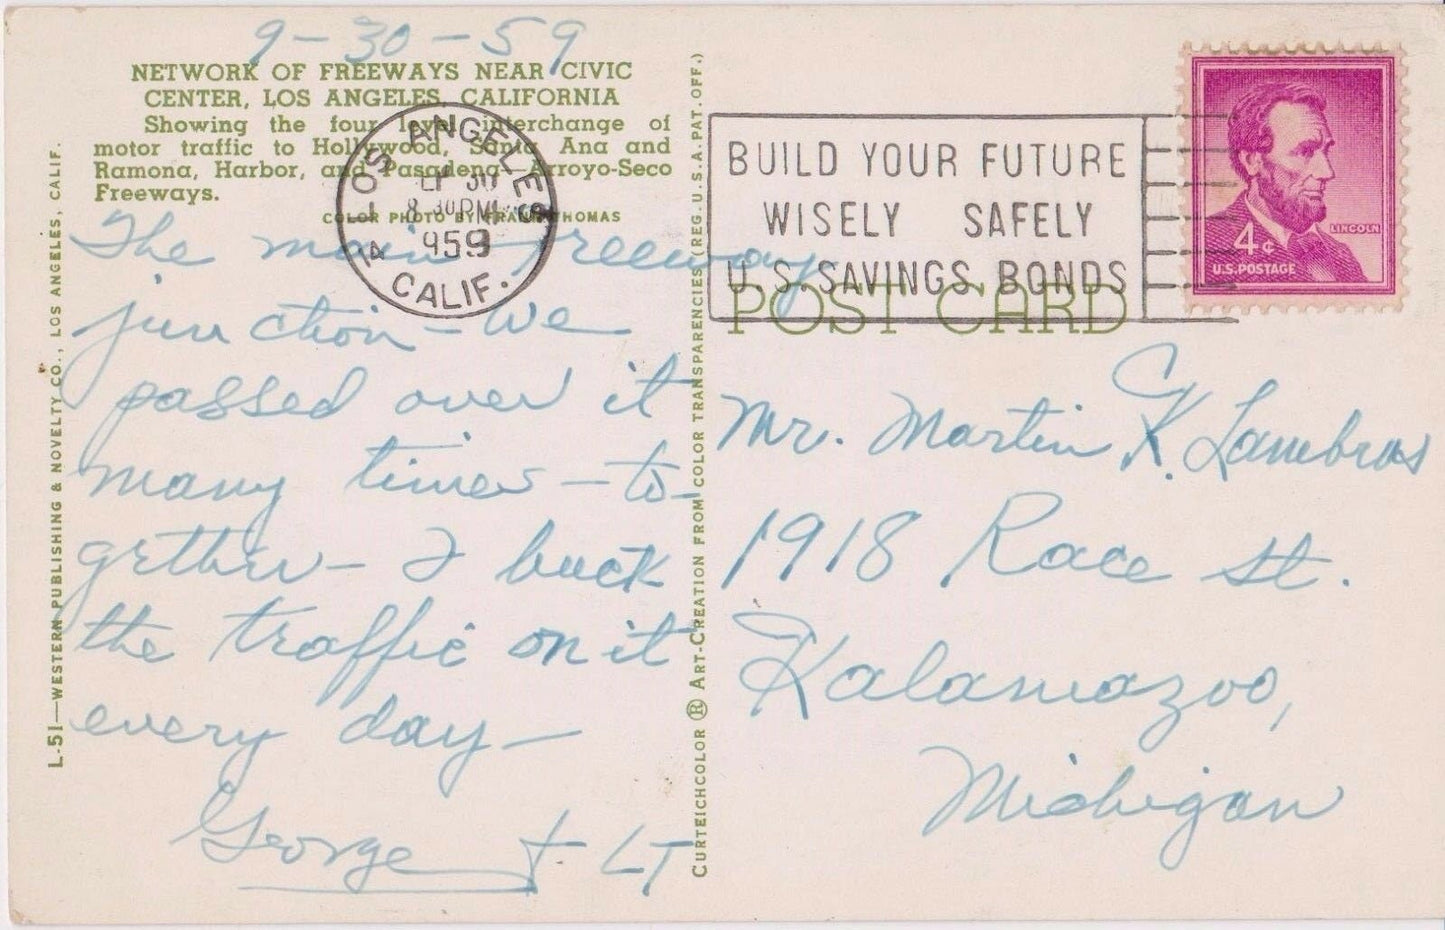 9-30-59
NETWORK OF FREEWAYS NEAR CIVIC
CENTER, LOS ANGELES, CALIFORNIA
Showing the four level interchange of
motor traffic to Hollywood, Santa Ana and
Ramona, Harbor, and Pasadena-Arroyo-Seco
Freeways.
COLOR PHOTO BY FRANK THOMAS
LOS ANGELES
CALIF.
30
8 30 PM
1959
The main freeway
junction - we
passed over it
many times - to-
gether - I buck
the traffic on it
every day -
George + LT
L-51—WESTERN PUBLISHING & NOVELTY CO., LOS ANGELES, CALIF.
CURTEICHCOLOR ® ART-CREATION FROM COLOR TRANSPARENCIES (REG. U.S.A. PAT. OFF.)
BUILD YOUR FUTURE
WISELY SAFELY
U.S. SAVINGS BONDS
POST CARD
LINCOLN
4¢
U.S. POSTAGE
Mr. Martin K. Lambros
1918 Race St.
Kalamazoo,
Michigan